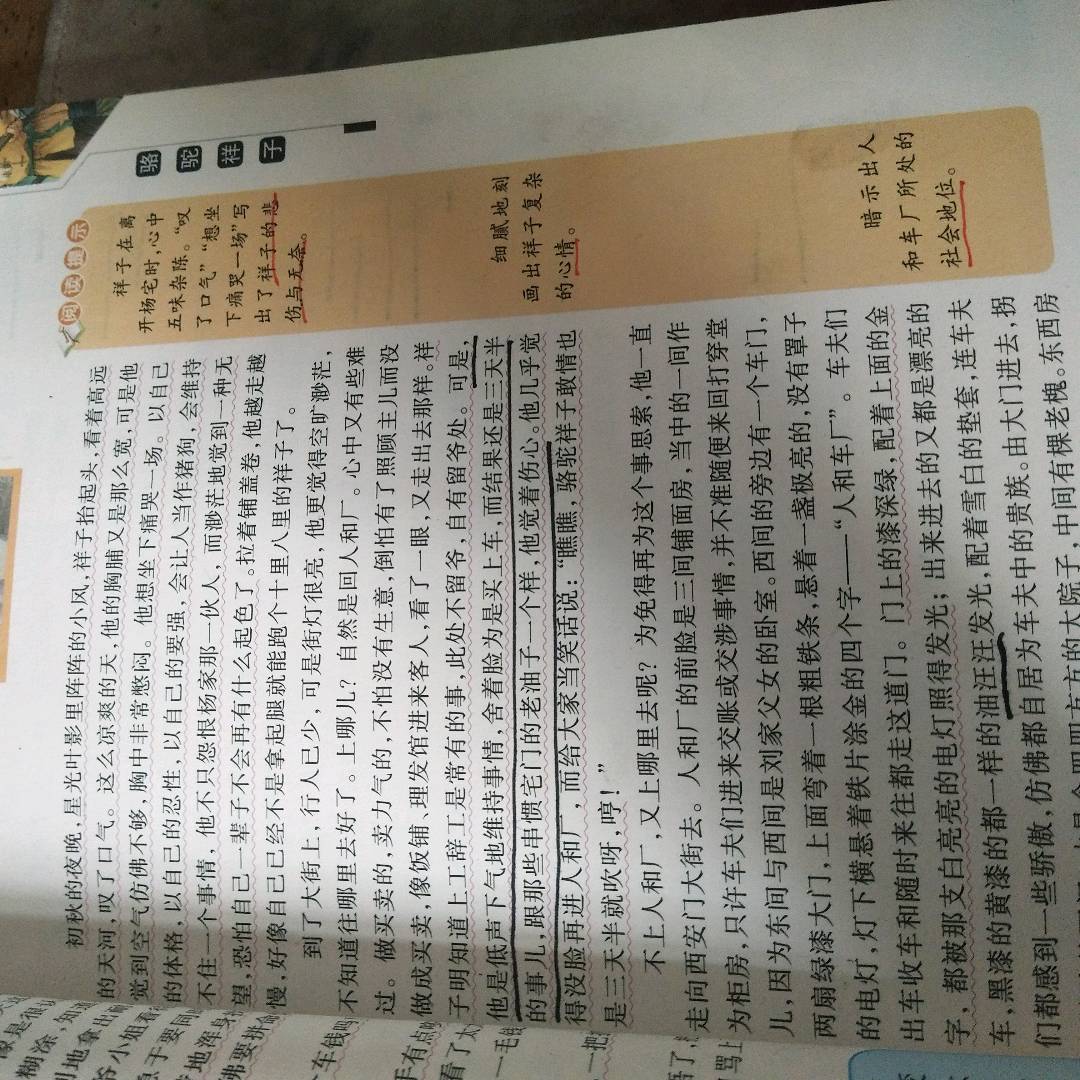 骆驼祥子
阅读提示
祥子在离
开杨宅时,心中
五味杂陈。“叹
了口气”“想坐
下痛哭一场”写
出了祥子的悲
伤与无奈。
细腻地刻
画出祥子复杂
的心情。
暗示出人
和车厂所处的
社会地位。
初秋的夜晚,星光叶影里阵阵的小风,祥子抬起头,看着高远
的天河,叹了口气。这么凉爽的天,他的胸脯又是那么宽,可是他
觉到空气仿佛不够,胸中非常憋闷。他想坐下痛哭一场。以自己
的体格,以自己的忍性,以自己的要强,会让人当作猪狗,会维持
不住一个事情,他不只怨恨杨家那一伙人,而渺茫地觉到一种无
望,恐怕自己一辈子不会再有什么起色了。拉着铺盖卷,他越走越
慢,好像自己已经不是拿起腿就能跑个十里八里的祥子了。
到了大街上,行人已少,可是街灯很亮,他更觉得空旷渺茫,
不知道往哪里去好了。上哪儿?自然是回人和厂。心中又有些难
过。做买卖的,卖力气的,不怕没有生意,倒怕有了照顾主儿而没
做成买卖,像饭铺、理发馆进来客人,看了一眼,又走出去那样。祥
子明知道上工辞工是常有的事,此处不留爷,自有留爷处。可是,
他是低声下气地维持事情,舍着脸为是买上车,而结果还是三天半
的事儿,跟那些串惯宅门的老油子一个样,他觉着伤心。他几乎觉
得没脸再进人和厂,而给大家当笑话说:“瞧瞧,骆驼祥子敢情也
是三天半就吹呀,哼!”
不上人和厂,又上哪里去呢?为免得再为这个事思索,他一直
走向西安门大街去。人和厂的前脸是三间铺面房,当中的一间作
为柜房,只许车夫们进来交账或交涉事情,并不准随便来回打穿堂
儿,因为东间与西间是刘家父女的卧室。西间的旁边有一个车门,
两扇绿漆大门,上面弯着一根粗铁条,悬着一盏极亮的,没有罩子
的电灯,灯下横悬着铁片涂金的四个字——“人和车厂”。车夫们
出车收车和随时来往都走这道门。门上的漆深绿,配着上面的金
字,都被那支白亮亮的电灯照得发光;出来进去的又都是漂亮的
车,黑漆的黄漆的都一样的油汪汪发光,配着雪白的垫套,连车夫
们都感到一些骄傲,仿佛都自居为车夫中的贵族。由大门进去,拐
四四方方的大院子,中间有棵老槐。东西房